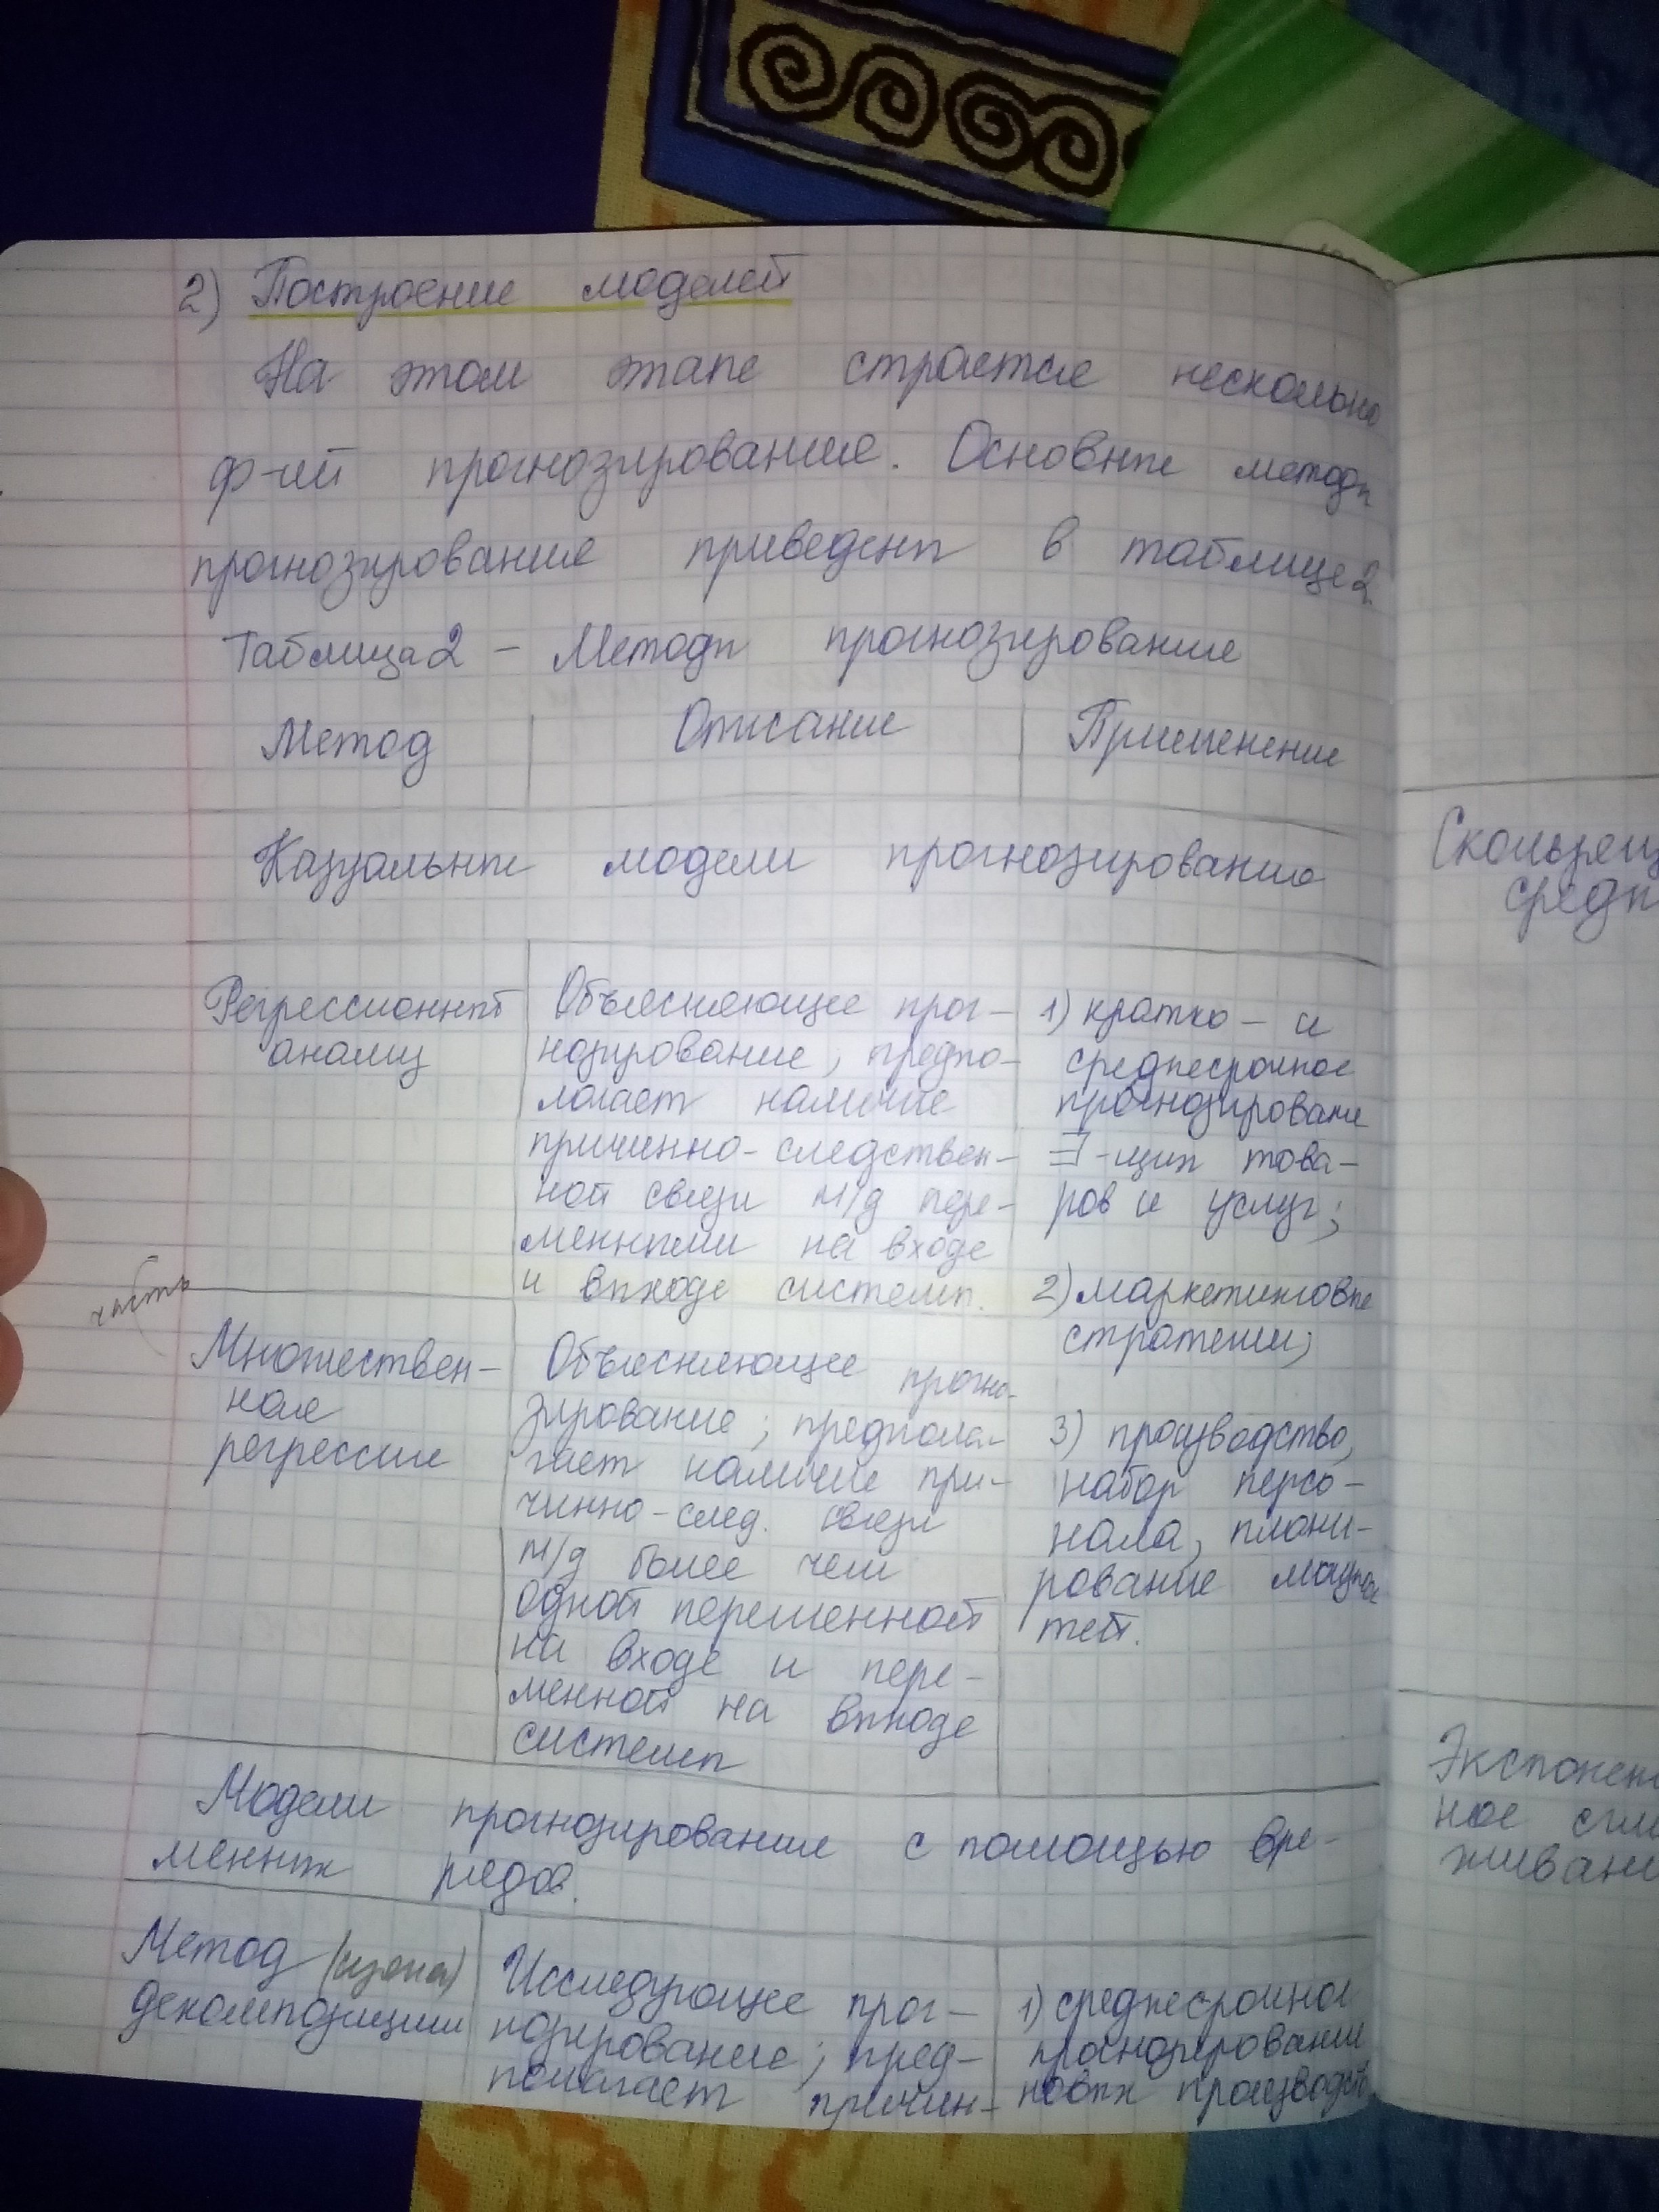 2) Построение моделей
На этом этапе страется несколько
ф-ий прогнозирования. Основные методы
прогнозирования приведены в таблице 2
Таблица 2 – Методы прогнозирования
Метод Описание Применение
Казуальные модели прогнозирования
Регрессионный
анализ
Объясняющее прог-
нозирование, предпо-
лагает наличие
причинно-следствен-
ной связи м/д пере-
менными на входе
и выходе системы.
1) кратко – и
среднесрочное
прогнозирование
∃-щих това-
ров и услуг;
2) маркетинговые
стратегии;
3) производство,
набор персо-
нала, плани-
рование мощнос
тей.
часть
Множествен-
ная
регрессия
Объясняющее прогно-
зирование; предпола-
гает наличие при-
чинно-след. связи
м/д более чем
одной переменной
на входе и пере-
менной на выходе
системы
Модели прогнозирования с помощью вре-
менных рядов.
Метод
декомпозиции
Исследующее прог-
нозирование; пред-
полагает причин-
1) среднесрочное
прогнозирование
новых производств
Скользящ
средн
Экспонен
ное сгла
живани